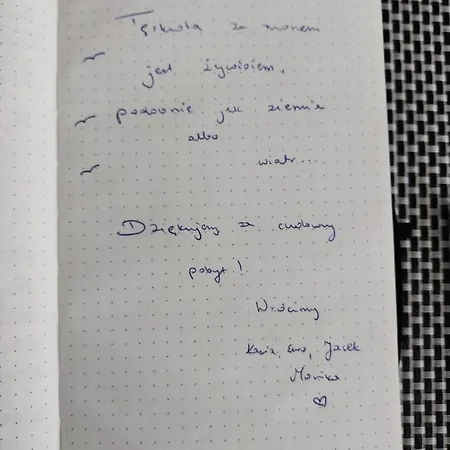 Tęsknota za morzem
jest żywiołem,
podobnie jak ziemia
albo
wiatr...
Dziękujemy za cudowny
pobyt!
Wrócimy
Kasia, Ewa, Jacek
Monika